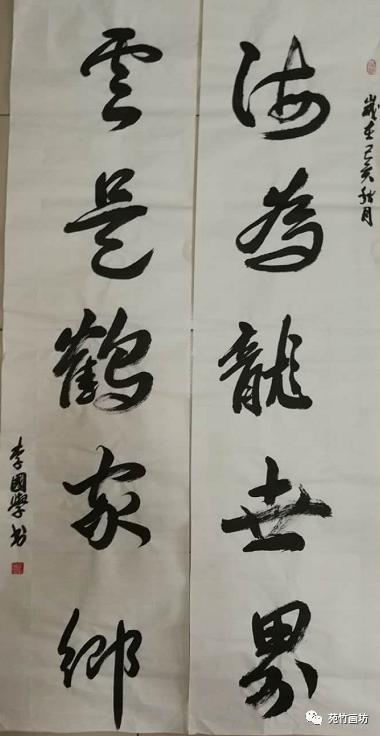 歲在己亥秋月
海為龍世界
雲是鶴家鄉
李國學书
苑竹画坊